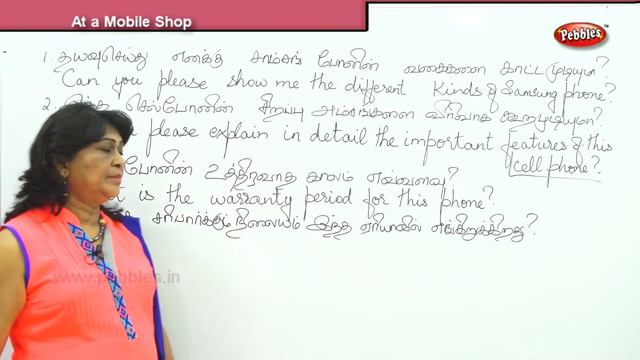 At a Mobile Shop
Pebbles
1. தயவுசெய்து எனக்கு சாம்சங் போனின் வகைகளை காட்ட முடியுமா?
Can you please show me the different Kinds of Samsung phone?
2. இந்த செல்போனின் சிறப்பு அம்சங்களை விரிவாக கூறமுடியுமா?
please explain in detail the important features of this
cell phone?
போனின் உத்திரவாத காலம் எவ்வளவு?
is the warranty period for this phone?
சரிபார்க்கும் நிலையம் இந்த ஏரியாவில் எங்கிருக்கிறது?
www.pebbles.in